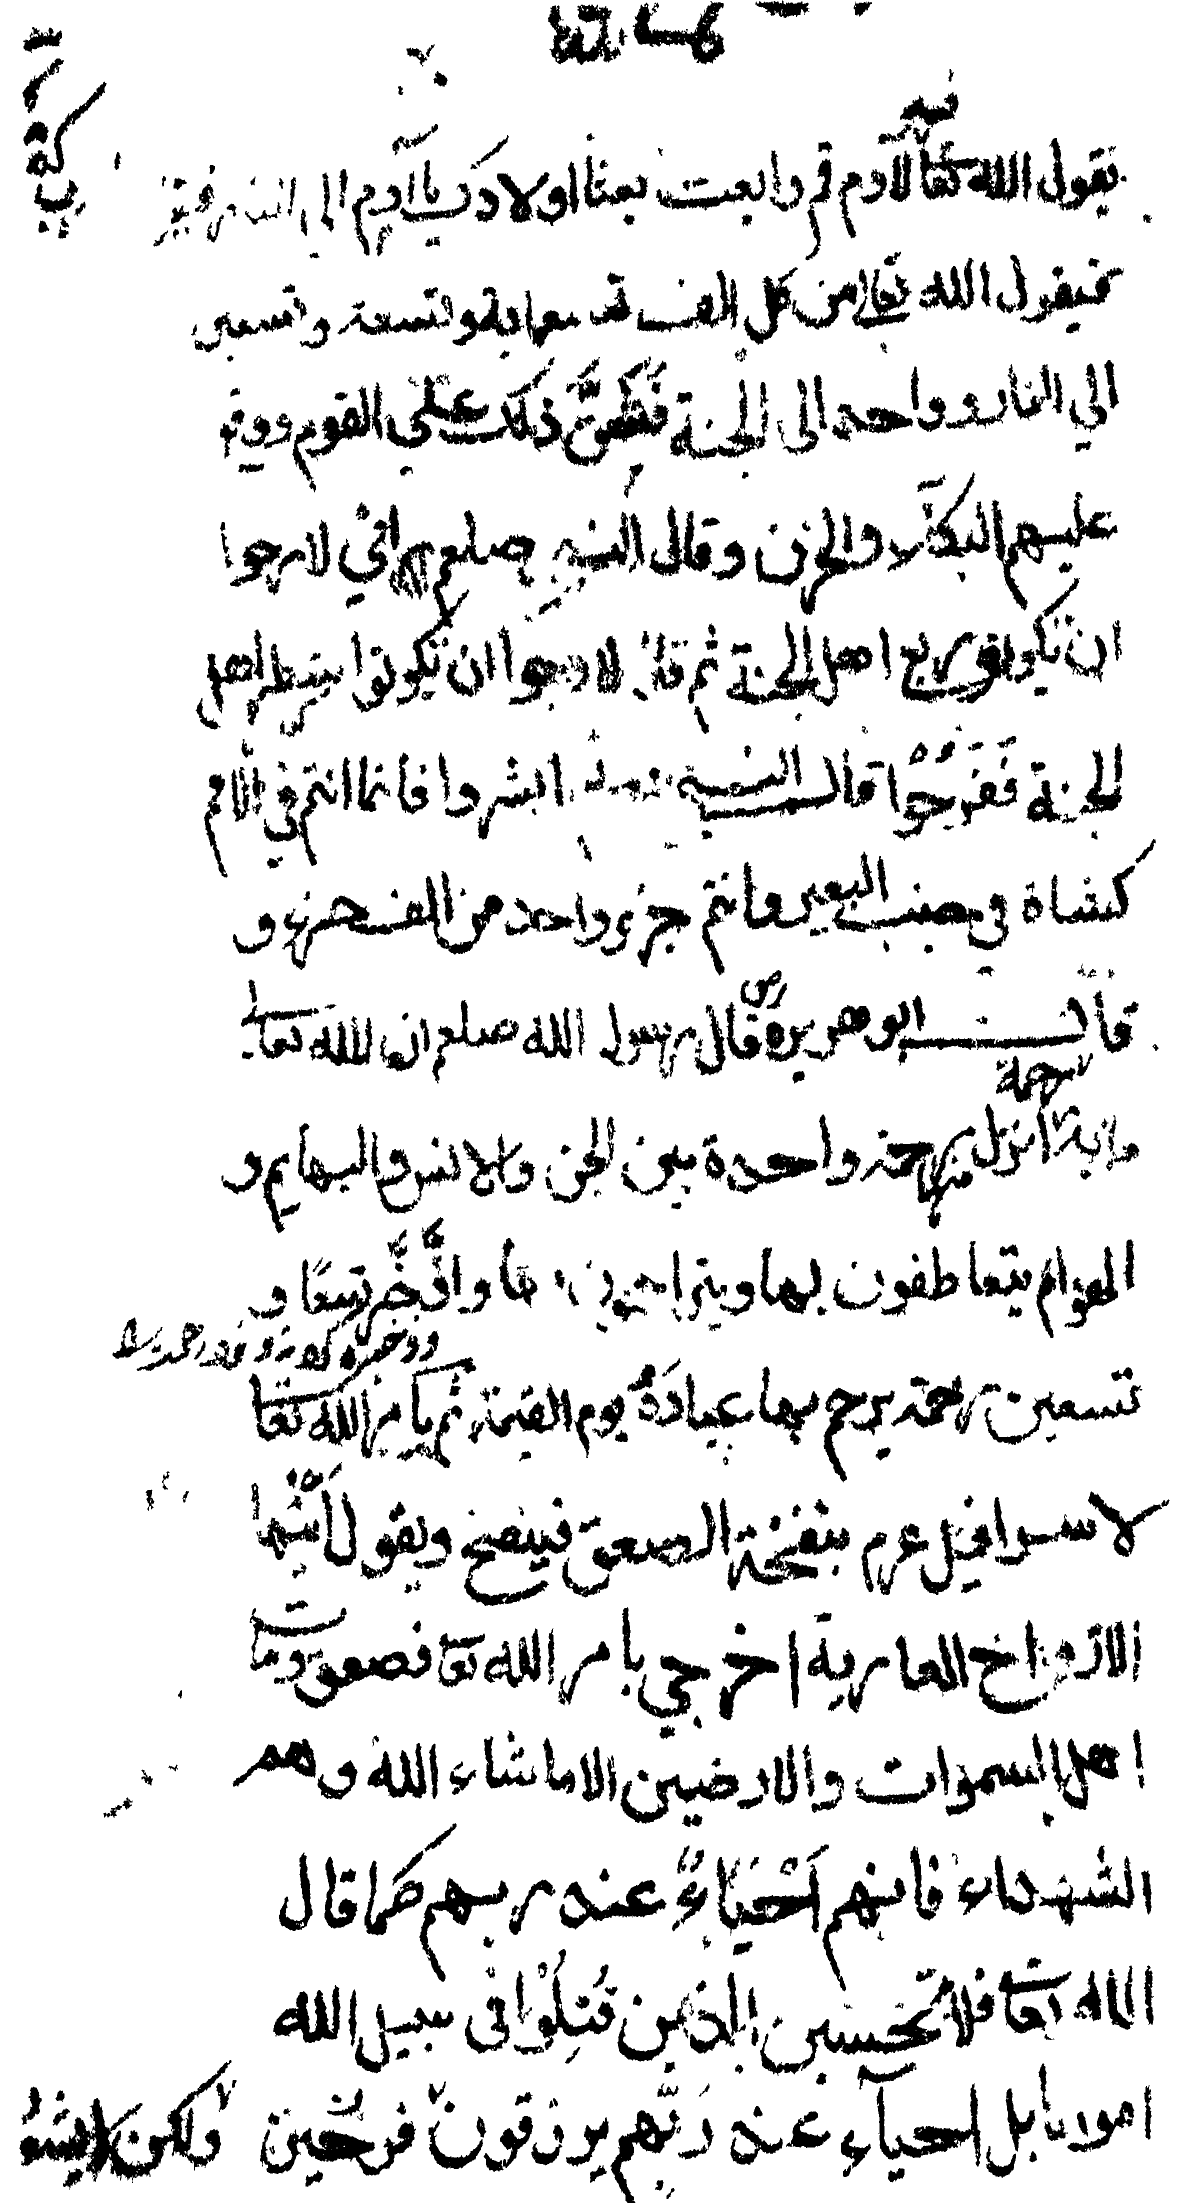 فيه
يقول الله تعا لآدم قم وابعث بعثا اولادك يا آدم الى النار فيقو
فيقول الله تعالى من كل الف تسعماية وتسعة وتسعين
الي النار وواحد الى الجنة فَعَظُمَ ذلك علي القوم ووقع
عليهم البكاء والحزن وقال النبي صلعم اني لارجوا
ان تكونوا ربع اهل الجنة ثم قال لارجوا ان تكونوا شطر اهل
الجنة ففرحُوا قال النبي ابشروا فانما انتم في الامم
كشاة في جنب البعير وانتم جزء واحد من الف جزء و
قالــــ ابو هريرة رض قال رسول الله صلعم ان لله تعا
رحمة
ماية انزل منها رحمة واحدة بين الجن والانس والبهايم و
الهوام يتعاطفون بها ويتراحمون بها واخَّر تسعًا و
تسعين رحمة يرحم بها عبادهُ يوم القيمة ثم يامر الله تعا
لاسرافيل عرم بنفخة الصعق فينفخ ويقول أيتها
الارواح العارية اخرجي بامر الله تعا فصعق ومات
اهل السموات والارضين الا ما شاء الله وهم
الشهداء فانهم أحْيَاءٌ عند ربهم كما قال
الله تعا فلا تحسبن الذين قُتِلُوا في سبيل الله
امواتا بل احيآء عند رَبّهم يرزقون فرحين ولكن لا يشعُ